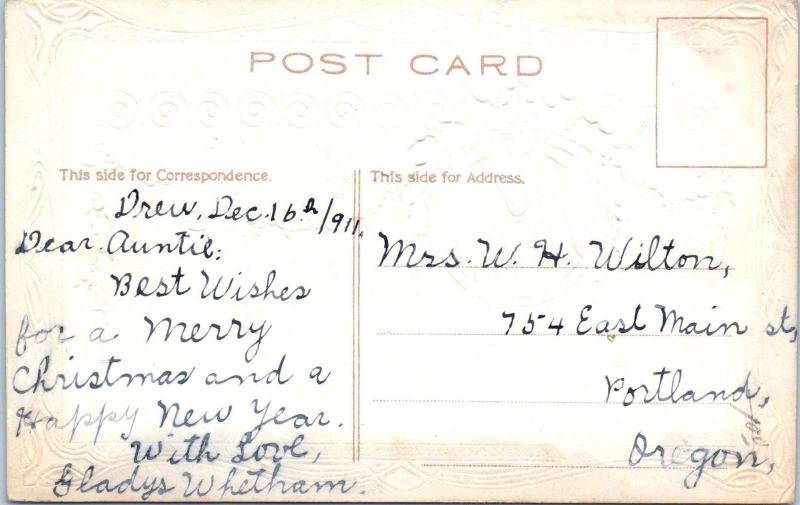 POST CARD
This side for Correspondence.
Drew, Dec. 16th/911.
Dear Auntie;
Best Wishes
for a Merry
Christmas and a
Happy New Year.
With Love,
Gladys Whetham.
This side for Address.
Mrs. W. H. Wilton,
754 East Main st,
Portland,
Oregon,